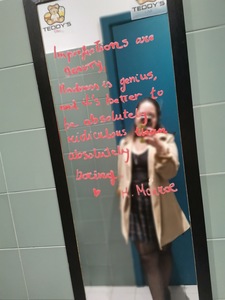 TEDDY'S
TEDDY'S
Imperfections are
beauty,
Madness is genius,
and it's better to
be absolutely
ridiculous than
absolutely
boring.
M. Monroe